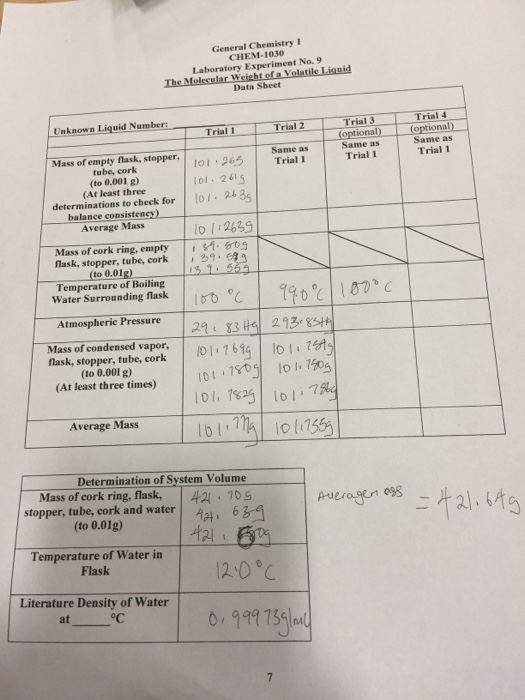 General Chemistry 1
CHEM-1030
Laboratory Experiment No. 9
The Molecular Weight of a Volatile Liquid
Data Sheet
Unknown Liquid Number:
Trial 1
Trial 2
Trial 3
(optional)
Trial 4
(optional)
Mass of empty flask, stopper,
tube, cork
(to 0.001 g)
(At least three
determinations to check for
balance consistency)
101.265
101.261g
101.263g
Same as
Trial 1
Same as
Trial 1
Same as
Trial 1
Average Mass
101.263g
Mass of cork ring, empty
flask, stopper, tube, cork
(to 0.01g)
Temperature of Boiling
Water Surrounding flask
100 °C
99.0°C
100°C
Atmospheric Pressure
29.83Hg
Mass of condensed vapor,
flask, stopper, tube, cork
(to 0.001 g)
(At least three times)
101.769g
101.780g
101.782g
101.759g
101.750g
Average Mass
101.77g
101.755g
Determination of System Volume
Mass of cork ring, flask,
stopper, tube, cork and water
(to 0.01g)
421.70g
421.63g
421.
Average
= 421.64g
Temperature of Water in
Flask
12.0°C
Literature Density of Water
at ____°C
0.99973g/ml
7